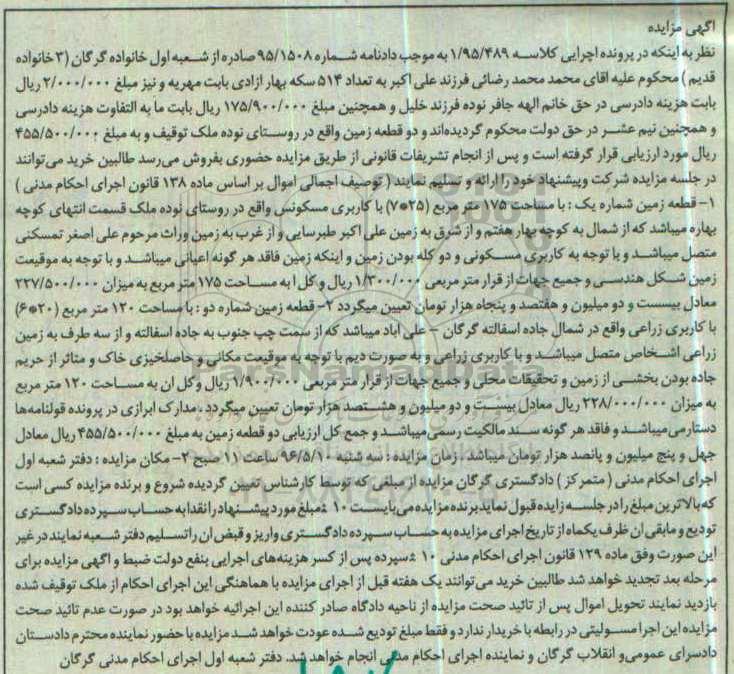 اگهی مزایده
نظر به اینکه در پرونده اجرایی کلاسه ۱/۹۵/۴۸۹ به موجب دادنامه شماره ۹۵/۱۵۰۸ صادره از شعبه اول خانواده گرگان (۳ خانواده
قدیم) محکوم علیه اقای محمد محمد رضائی فرزند علی اکبر به تعداد ۵۱۴ سکه بهار ازادی بابت مهریه و نیز مبلغ ۲/۰۰۰/۰۰۰ ریال
بابت هزینه دادرسی در حق خانم الهه جافر نوده فرزند خلیل و همچنین مبلغ ۱۷۵/۹۰۰/۰۰۰ ریال بابت ما به التفاوت هزینه دادرسی
و همچنین نیم عشر در حق دولت محکوم گردیده‌اند و دو قطعه زمین واقع در روستای نوده ملک توقیف و به مبلغ ۴۵۵/۵۰۰/۰۰۰
ریال مورد ارزیابی قرار گرفته است و پس از انجام تشریفات قانونی از طریق مزایده حضوری بفروش می‌رسد طالبین خرید می‌توانند
در جلسه مزایده شرکت وپیشنهاد خود را ارائه و تسلیم نمایند (توصیف اجمالی اموال بر اساس ماده ۱۳۸ قانون اجرای احکام مدنی)
۱- قطعه زمین شماره یک : با مساحت ۱۷۵ متر مربع (۲۵*۷) با کاربری مسکونس واقع در روستای نوده ملک قسمت انتهای کوچه
بهاره میباشد که از شمال به کوچه بهار هفتم و از شرق به زمین علی اکبر طبرسایی و از غرب به زمین وراث مرحوم علی اصغر تمسکنی
متصل میباشد و با توجه به کاربری مسکونی و دو کله بودن زمین و اینکه زمین فاقد هر گونه اعیانی میباشد و با توجه به موقیعت
زمین شکل هندسی و جمیع جهات از قرار متر مربعی ۱/۳۰۰/۰۰۰ ریال و کل ا به مساحت ۱۷۵ متر مربع به میزان ۲۲۷/۵۰۰/۰۰۰
معادل بیسست و دو میلیون و هفتصد و پنجاه هزار تومان تعیین میگردد ۲- قطعه زمین شماره دو : با مساحت ۱۲۰ متر مربع (۲۰*۶)
با کاربری زراعی واقع در شمال جاده اسفالته گرگان – علی اباد میباشد که از سمت چپ جنوب به جاده اسفالته و از سه طرف به زمین
زراعی اشخاص متصل میباشد و با کاربری زراعی و به صورت دیم با توجه به موقیعت مکانی و حاصلخیزی خاک و متاثر از حریم
جاده بودن بخشی از زمین و تحقیقات محلی و جمیع جهات از قرار متر مربعی ۱/۹۰۰/۰۰۰ ریال وکل ان به مساحت ۱۲۰ متر مربع
به میزان ۲۲۸/۰۰۰/۰۰۰ ریال معادل بیست و دو میلیون و هشتصد هزار تومان تعیین میگردد .مدارک ابرازی در پرونده قولنامه‌ها
دستارمی میباشد و فاقد هر گونه سند مالکیت رسمی میباشد و جمع کل ارزیابی دو قطعه زمین به مبلغ ۴۵۵/۵۰۰/۰۰۰ ریال معادل
چهل و پنج میلیون و پانصد هزار تومان میباشد. زمان مزایده : سه شنبه ۹۶/۵/۱۰ ساعت ۱۱ صبح ۲- مکان مزایده : دفتر شعبه اول
اجرای احکام مدنی (متمرکز) دادگستری گرگان مزایده از مبلغی که توسط کارشناس تعیین گردیده شروع و برنده مزایده کسی است
که بالاترین مبلغ را در جلسه زایده قبول نماید برنده مزایده می‌بایست ۱۰٪ مبلغ مورد پیشنهاد را نقدا به حساب سپرده دادگستری
تودیع و مابقی ان ظرف یکماه از تاریخ اجرای مزایده به حساب سپرده دادگستری واریز و قبض ان را تسلیم دفتر شعبه نمایند در غیر
این صورت وفق ماده ۱۲۹ قانون اجرای احکام مدنی ۱۰٪ سپرده پس از کسر هزینه‌های اجرایی بنفع دولت ضبط و اگهی مزایده برای
مرحله بعد تجدید خواهد شد طالبین خرید می‌توانند یک هفته قبل از اجرای مزایده با هماهنگی این اجرای احکام از ملک توقیف شده
بازدید نمایند تحویل اموال پس از تائید صحت مزایده از ناحیه دادگاه صادر کننده این اجرائیه خواهد بود در صورت عدم تائید صحت
مزایده این اجرا مسولیتی در رابطه با خریدار ندارد و فقط مبلغ تودیع شده عودت خواهد شد مزایده با حضور نماینده محترم دادستان
دادسرای عمومی و انقلاب گرگان و نماینده اجرای احکام مدنی انجام خواهد شد. دفتر شعبه اول اجرای احکام مدنی گرگان
ParsNamadData